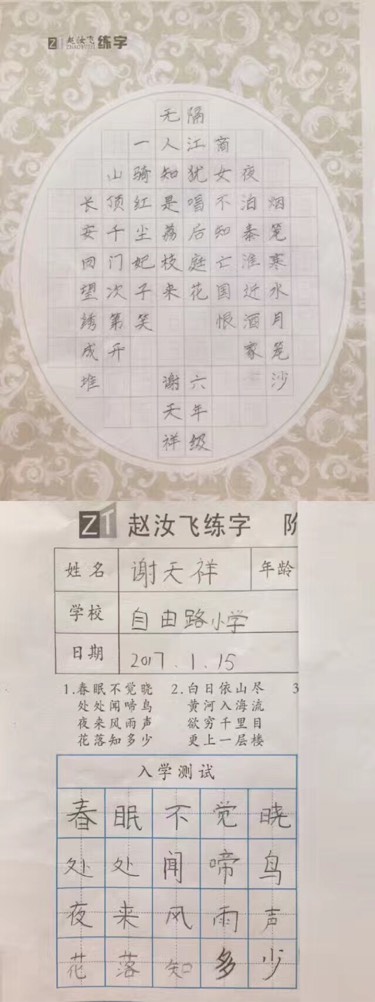 ZT 赵汝飞练字
ZHAORUFEI
烟笼寒水月笼沙
夜泊秦淮近酒家
商女不知亡国恨
隔江犹唱后庭花
无人知是荔枝来
一骑红尘妃子笑
山顶千门次第开
长安回望绣成堆
六年级
谢天祥
ZT 赵汝飞练字 阶
姓名 谢天祥 年龄
学校 自由路小学
日期 2017.1.15
1.春眠不觉晓
处处闻啼鸟
夜来风雨声
花落知多少
2.白日依山尽
黄河入海流
欲穷千里目
更上一层楼
3
入学测试
春眠不觉晓
处处闻啼鸟
夜来风雨声
花落知多少